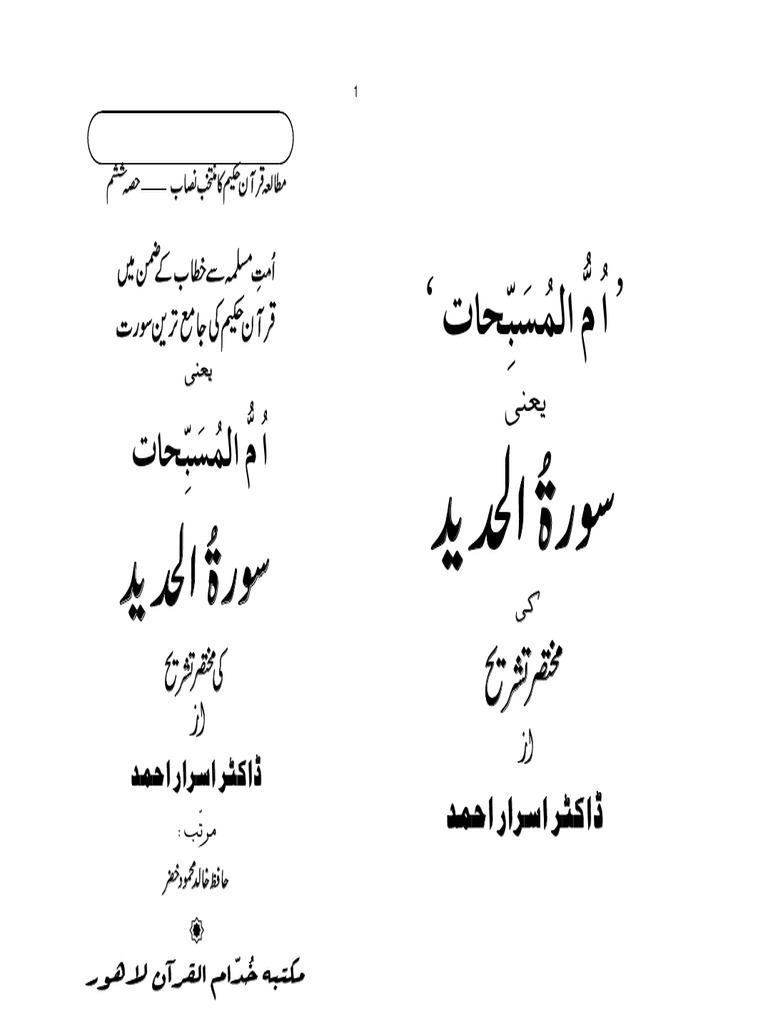 1
’اُمُّ المُسَبِّحات‘
یعنی
سورۃُ الحدید
کی
مختصر تشریح
از
ڈاکٹر اسرار احمد
مطالعہ قرآن حکیم کا منتخب نصاب — حصہ ششم
اُمتِ مسلمہ سے خطاب کے ضمن میں
قرآن حکیم کی جامع ترین سورت
یعنی
اُمُّ المُسَبِّحات
سورۃُ الحدید
کی مختصر تشریح
از
ڈاکٹر اسرار احمد
مرتّب:
حافظ خالد محمود خضر
مکتبہ خُدّام القرآن لاھور